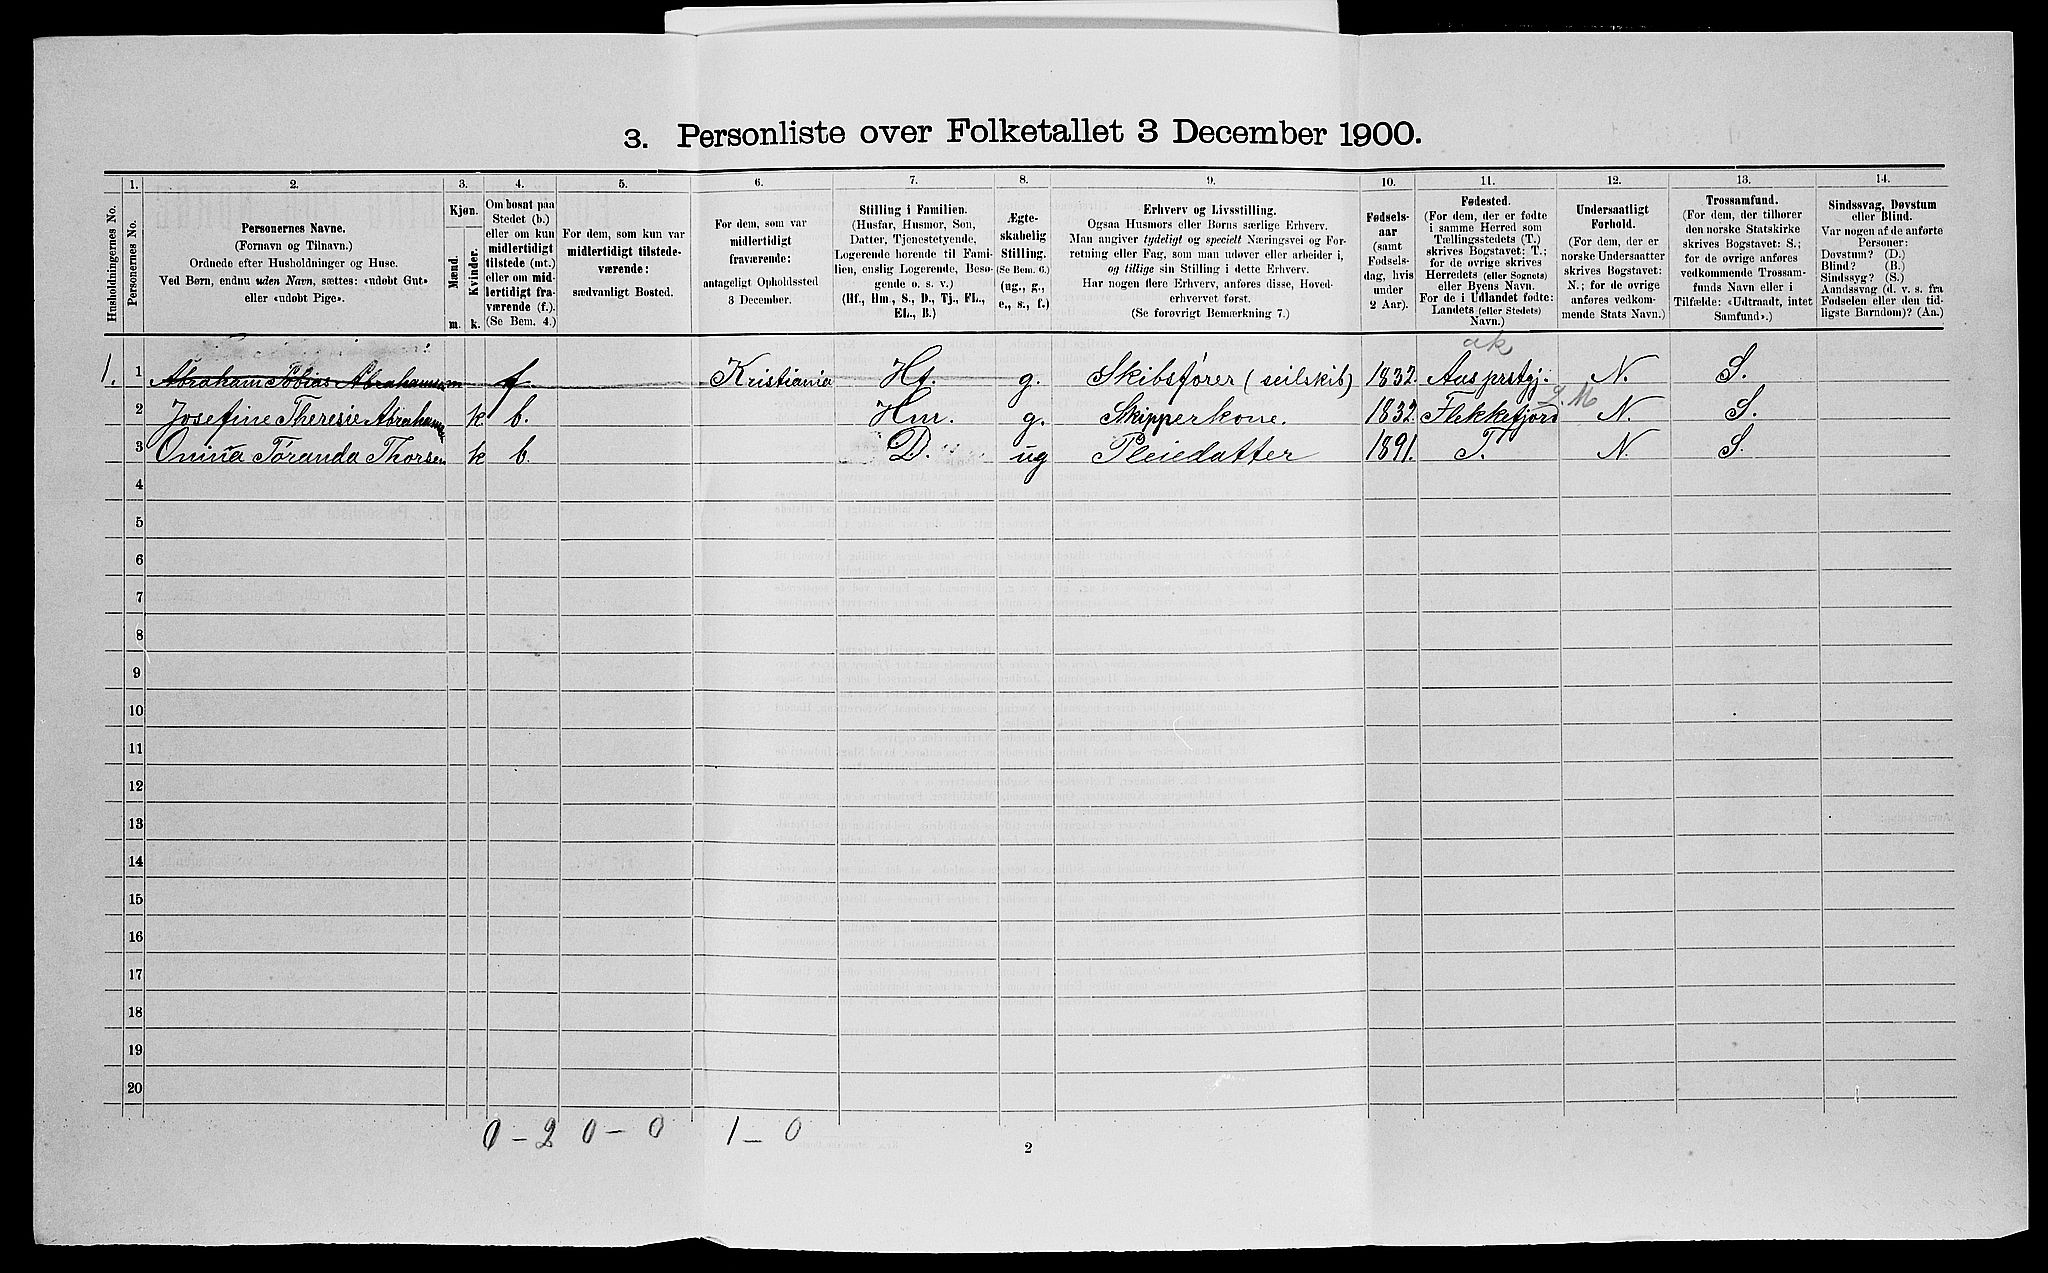 3. Personliste over Folketallet 3 December 1900.
Husholdningernes No.
1.
Personernes No.
2.
Personernes Navne.
(Fornavn og Tilnavn.)
Ordnede efter Husholdninger og Huse.
Ved Børn, endnu uden Navn, sættes: «udøbt Gut»
eller «udøbt Pige».
3.
Kjøn.
Mænd.
m.
Kvinder.
k.
4.
Om bosat paa
Stedet (b.)
eller om kun
midlertidigt
tilstede (mt.)
eller om mid-
lertidigt fra-
værende (f.)
(Se Bem. 4.)
5.
For dem, som kun var
midlertidigt tilstede-
værende:
sædvanligt Bosted.
6.
For dem, som var
midlertidigt
fraværende:
antageligt Opholdssted
3 December.
7.
Stilling i Familien.
(Husfar, Husmor, Søn,
Datter, Tjenestetyende,
Logerende hørende til Fami-
lien, enslig Logerende, Besø-
gende o. s. v.)
(Hf., Hm., S., D., Tj., FL.,
EL., B.)
8.
Ægte-
skabelig
Stilling.
(Se Bem. 6.)
(ug., g.,
e., s., f.)
9.
Erhverv og Livsstilling.
Ogsaa Husmors eller Børns særlige Erhverv.
Man angiver tydeligt og specielt Næringsvei og For-
retning eller Fag, som man udøver eller arbeider i,
og tillige sin Stilling i dette Erhverv.
Har nogen flere Erhverv, anføres disse, Hoved-
erhvervet først.
(Se forøvrigt Bemærkning 7.)
10.
Fødsels-
aar
(samt
Fødsels-
dag, hvis
under
2 Aar).
11.
Fødested.
(For dem, der er fødte
i samme Herred som
Tællingsstedets (T.)
skrives Bogstavet: T.;
for de øvrige skrives
Herredets (eller Sognets)
eller Byens Navn.
For de i Udlandet fødte:
Landets (eller Stedets)
Navn.)
12.
Undersaatligt
Forhold.
(For dem, der er
norske Undersaatter
skrives Bogstavet:
N.; for de øvrige
anføres vedkom-
mende Stats Navn.)
13.
Trossamfund.
(For dem, der tilhører
den norske Statskirke
skrives Bogstavet: S.;
for de øvrige anføres
vedkommende Trossam-
funds Navn eller i
Tilfælde: «Udtraadt, intet
Samfund».)
14.
Sindssvag, Døvstum
eller Blind.
Var nogen af de anførte
Personer:
Døvstum? (D.)
Blind? (B.)
Sindssyg? (S.)
Aandssvag (d. v. s. fra
Fødselen eller den tid-
ligste Barndom)? (Aa.)
ak
1. 1 Abraham Tobias Abrahamsen f. Kristiania Hf. g. Skibsfører (seilskib) 1832. Aus prstgj. N. S.
L. M
2 Josefine Theresie Abrahamsen k b. Hm. g. Skipperkone. 1832. Flekkefjord N. S.
3 Omina Toranda Thorsen k b. D. ug Pleiedatter 1891. T. N. S.
4
5
6
7
8
9
10
11
12
13
14
15
16
17
18
19
20
0 - 2 0 - 0 1 - 0
2